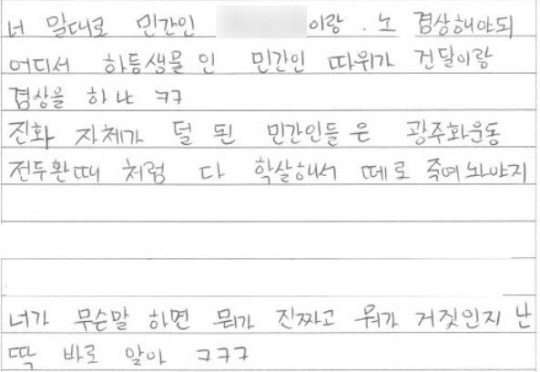 너 말대로 민간인 이랑 . 노 겸상해야되
어디서 하등생물 인 민간인 따위가 건달이랑
겸상을 하냐 ㅋㅋ
진화 자체가 덜 된 민간인들 은 광주화운동
전두환때 처럼 다 학살해서 떼로 죽여 놔야지
너가 무슨말 하면 뭐가 진짜고 뭐가 거짓인지 난
딱 바로 알아 ㅋㅋㅋ